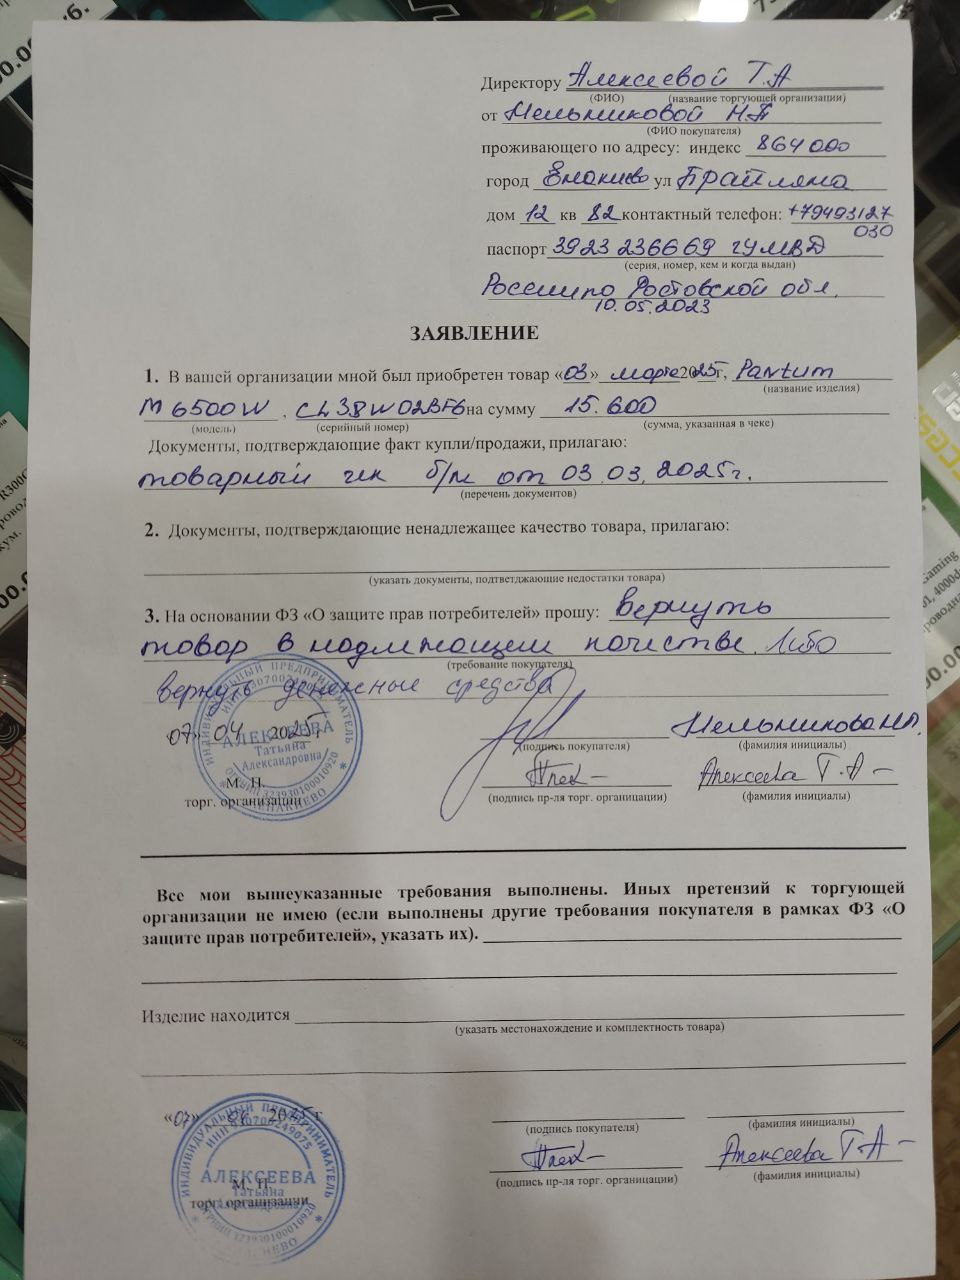 Директору Алексеевой Т.А
(ФИО) (название торгующей организации)
от Мельниковой Н.П
(ФИО покупателя)
проживающего по адресу: индекс 864000
город Енакиево ул Брайляна
дом 12 кв 82 контактный телефон: +79493127
030
паспорт 3923 236669 ГУ МВД
(серия, номер, кем и когда выдан)
России по Ростовской обл.
10.05.2023
ЗАЯВЛЕНИЕ
1. В вашей организации мной был приобретен товар «03» марта 2025г, Pantum
(название изделия)
M6500W, CL38W02BF6 на сумму 15.600
(модель) (серийный номер) (сумма, указанная в чеке)
Документы, подтверждающие факт купли/продажи, прилагаю:
товарный чек б/н от 03.03.2025г.
(перечень документов)
2. Документы, подтверждающие ненадлежащее качество товара, прилагаю:
(указать документы, подтветджающие недостатки товара)
3. На основании ФЗ «О защите прав потребителей» прошу: вернуть
товар в надлжащем качестве. либо
(требование покупателя)
вернуть денежные средства
07» 04 2025г
(подпись покупателя) Мельникова Н.П.
(фамилия инициалы)
М. П.
торг. организации
(подпись пр-ля торг. органицации) Алексеева Т.А
(фамилия инициалы)
ИНДИВИДУАЛЬНЫЙ ПРЕДПРИНИМАТЕЛЬ
АЛЕКСЕЕВА
Татьяна
Александровна
ОГРНИП 323930100010920
ЕНАКИЕВО
Все мои вышеуказанные требования выполнены. Иных претензий к торгующей
организации не имею (если выполнены другие требования покупателя в рамках ФЗ «О
защите прав потребителей», указать их).
Изделие находится
(указать местонахождение и комплектность товара)
«07» 04 2025г
(подпись покупателя) (фамилия инициалы)
М. П.
торг. организации
(подпись пр-ля торг. органицации) Алексеева Т.А
(фамилия инициалы)
ИНДИВИДУАЛЬНЫЙ ПРЕДПРИНИМАТЕЛЬ
АЛЕКСЕЕВА
Татьяна
Александровна